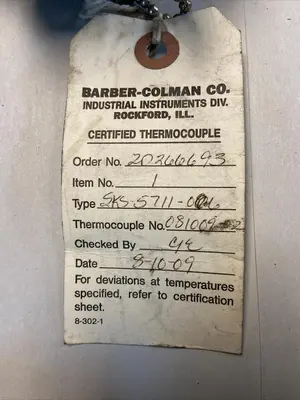 BARBER-COLMAN CO.
INDUSTRIAL INSTRUMENTS DIV.
ROCKFORD, ILL.
CERTIFIED THERMOCOUPLE
Order No. 20266693
Item No. 1
Type
Thermocouple No.
Checked By
Date 8-10-09
For deviations at temperatures
specified, refer to certification
sheet.
8-302-1